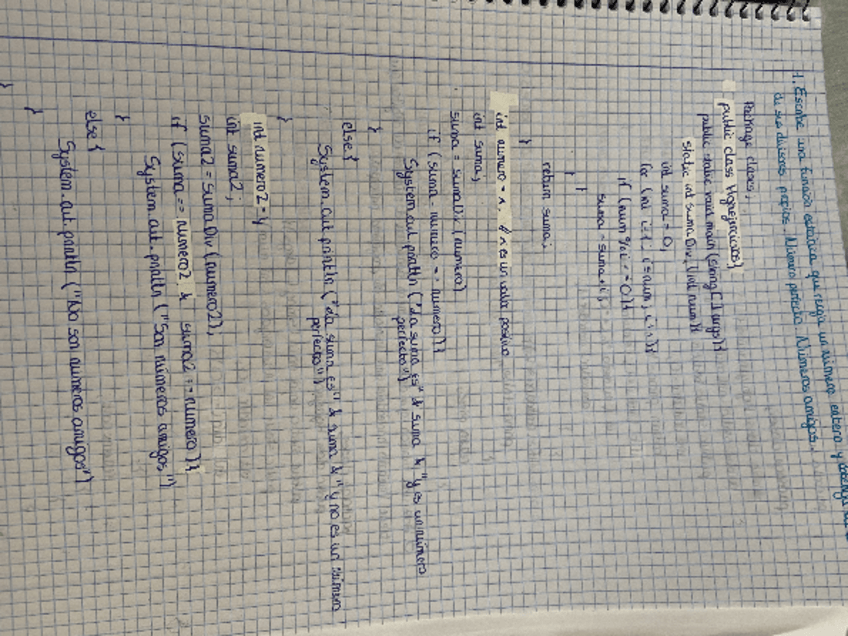 1. Escribe una función estática que reciba un número entero y obtenga la
de sus divisores propios. Número perfecto. Números amigos.
Package clases;
public class Hojaejercicios{
public static void main (string [] args){
static int sumaDiv (int num){
int suma = 0;
for (int i=1; i<num; i++){
if (num % i == 0){
suma = suma+i;
}
}
return suma;
}
int numero = x; // x es un valor positivo
int suma;
suma = sumaDiv (numero)
if (suma == numero){
System.out.println ("La suma es" & suma & "y es un número
perfecto")
}
else{
System.out.println ("La suma es" & suma & "y no es un número
perfecto")
}
int numero2 = y
int suma2;
suma2 = sumaDiv (numero2);
if (suma == numero2 & suma2 == numero){
System.out.println ("Son números amigos")
}
else{
System.out.println ("No son números amigos")
}
}